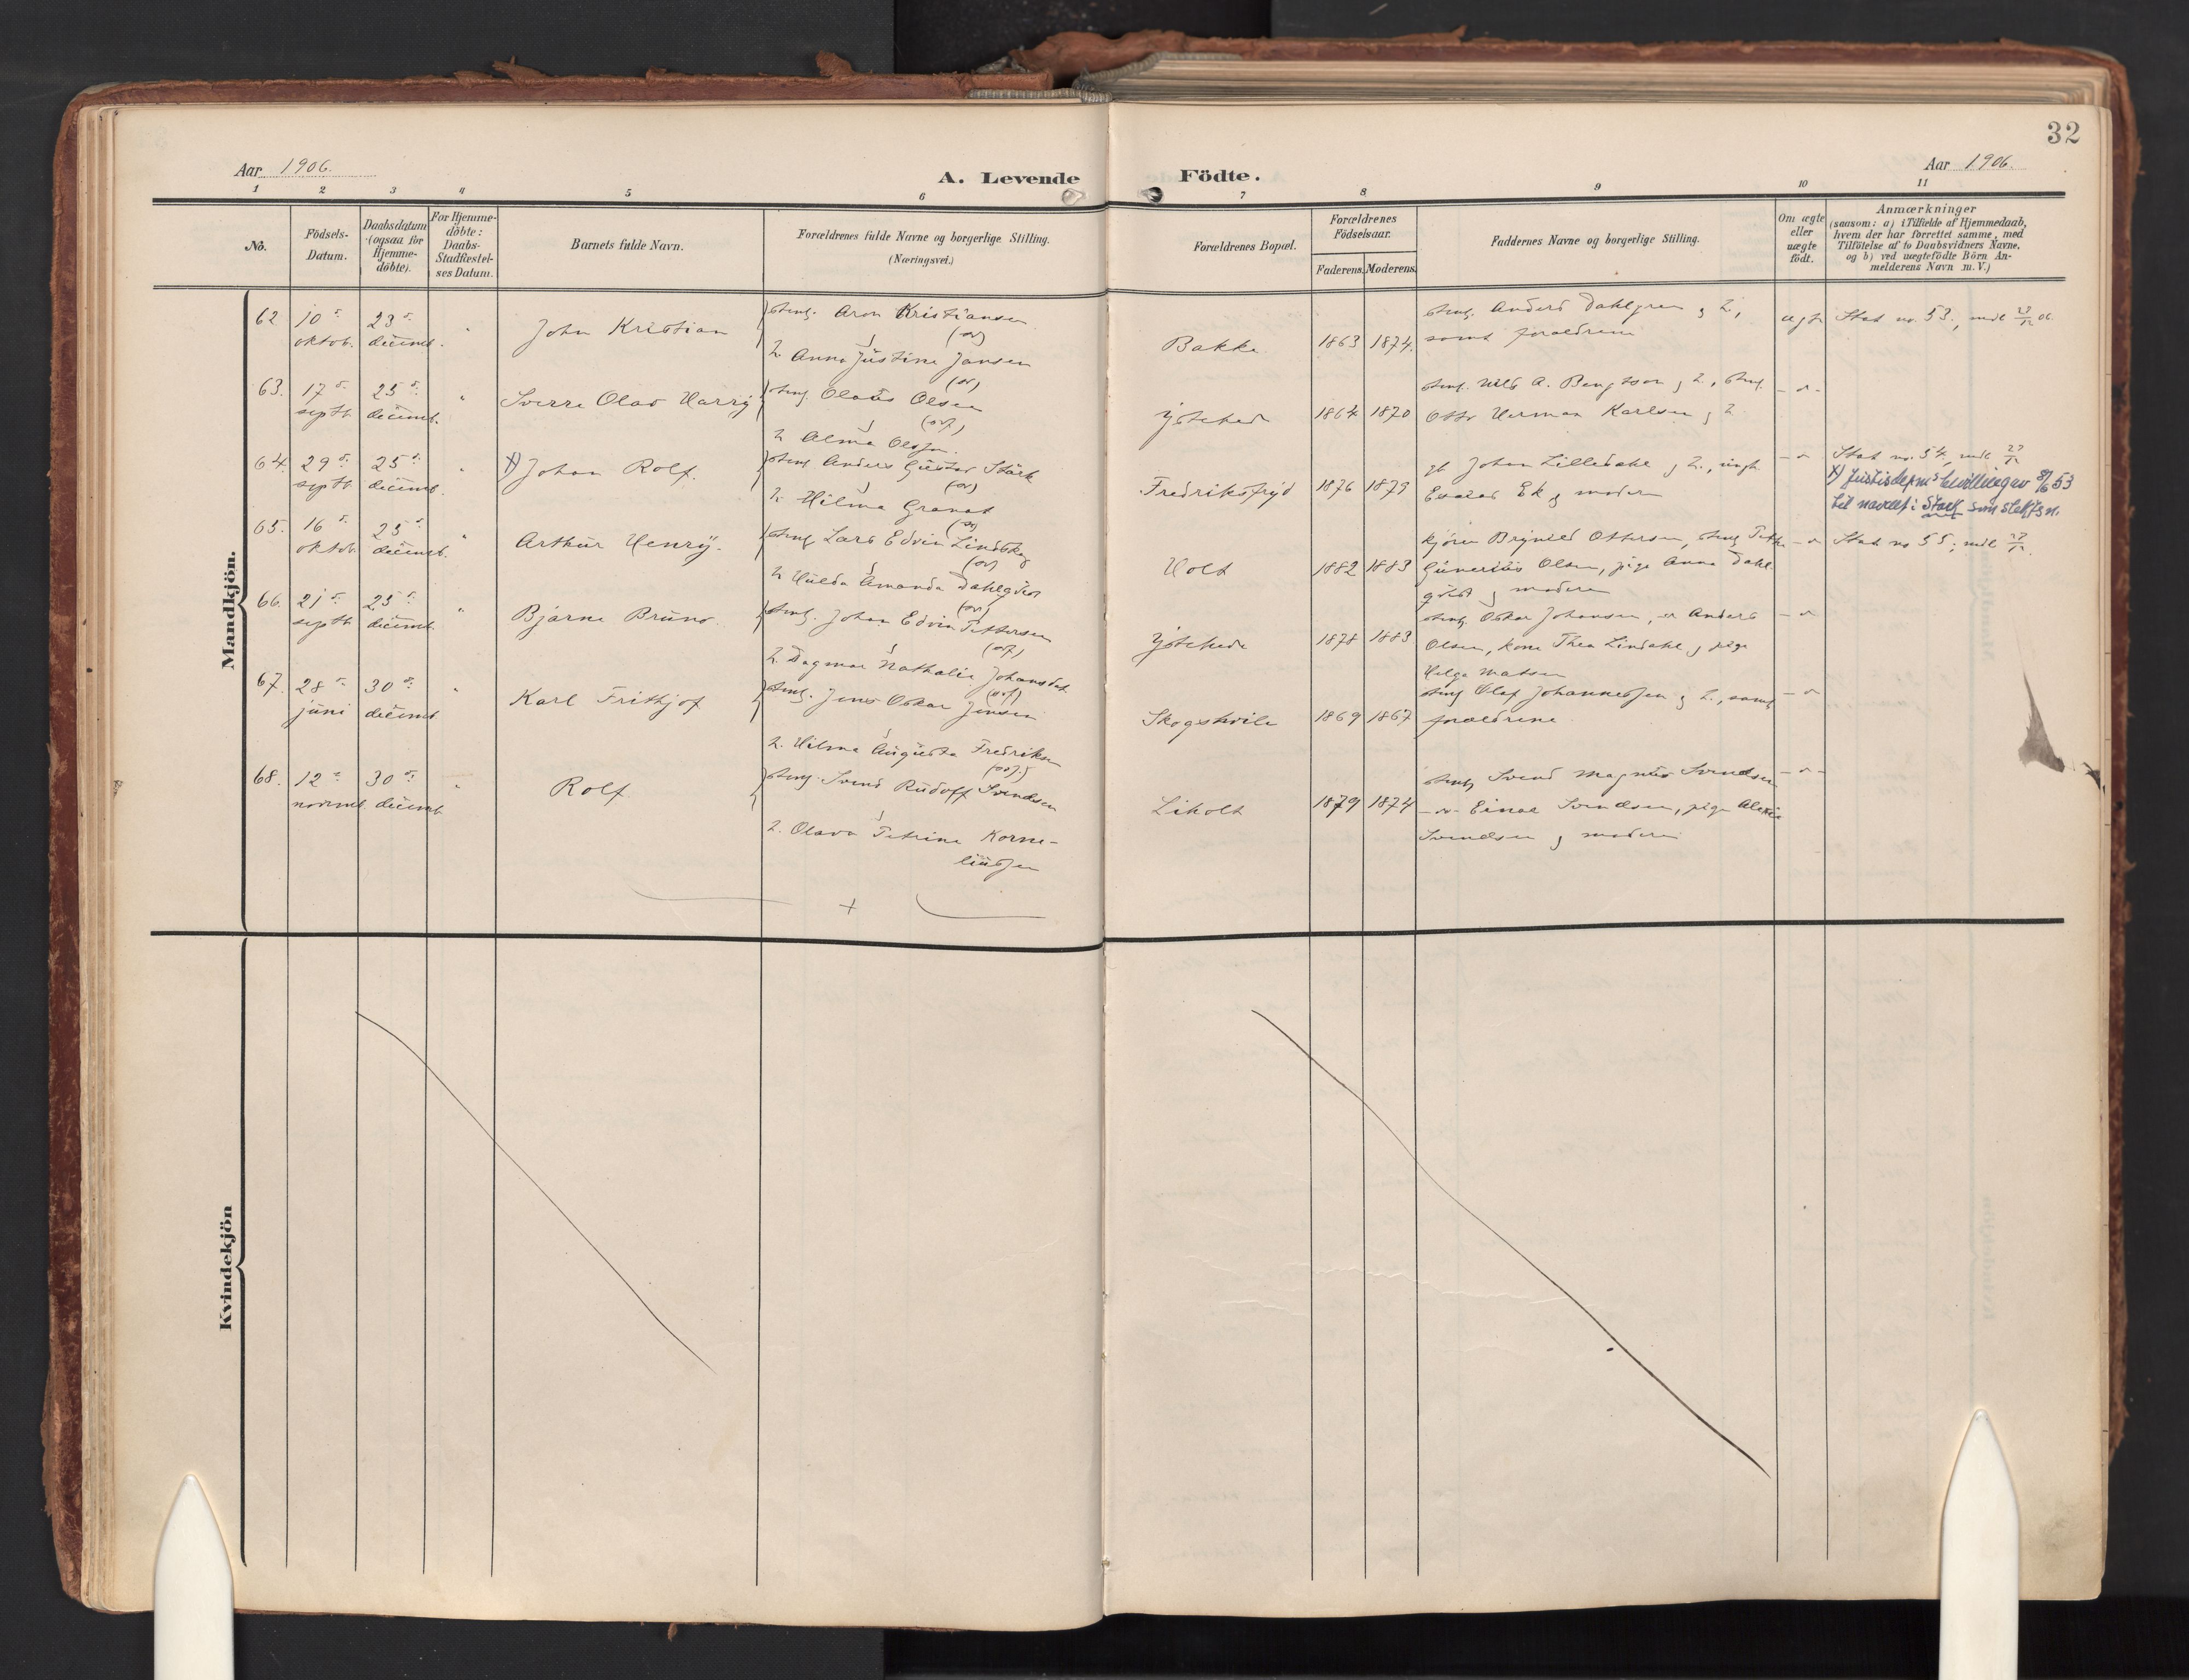 32
Aar 1906.
A. Levende
Födte.
Aar 1906.
1 2 3 4 5 6 7 8 9 10 11
No.
Födsels-
Datum.
Daabsdatum
(ogsaa for
Hjemme-
döbte).
For Hjemme-
döbte:
Daabs-
Stadfæstel-
ses Datum.
Barnets fulde Navn.
Forældrenes fulde Navne og borgerlige Stilling.
(Næringsvei.)
Forældrenes Bopæl.
Forældrenes
Födselsaar.
Faderens. Moderens.
Faddernes Navne og borgerlige Stilling.
Om ægte
eller
uægte
födt.
Anmærkninger
(saasom: a) i Tilfælde af Hjemmedaab,
hvem der har forrettet samme, med
Tilföielse af to Daabsvidners Navne,
og b) ved uægtefödte Börn An-
melderens Navn m. V.)
Mandkjön.
62 10 oktob. 23 decemb. John Kristian
Aron Kristiansen
Anna Justine Jansen
Bakke 1863 1874.
Anders Dahlgren
samt forældrene
ægte
Stat. no. 53.
63. 17 septb. 25 decemb. Sverre Olav Harry
Olaus Olsen
Alma Olsen
1864 1870
A. Bengtson
Otto Herman Karlsen
64. 29 septb. 25 decemb. x) Johan Rolf.
Anders Gustav Stärk
Hilma Granat
Fredriksfryd 1876 1879
Johan Lilledahl
Ek og moderen
Stat. no. 54
x) Justisdepms bevilling av 8/6 53
til navnet: Stark som slektsn.
65. 16 oktob. 25 decemb. Arthur Henry.
Lars Edvin Lindskog
Hulda Amanda Dahlqvist
Holt 1882 1883
Ottersen,
Gunerius Olsen, pige Anna Dahl-
qvist og moderen
Stat. no 55
66. 21 septb. 25 decemb. Bjarne Bruno.
Johan Edvin Pettersen
Dagmar Nathalie Johansdat.
1878 1883
Oskar Johansen, Anders
Olsen, kone Thea Lindahl, pige
Helga Matsen
67. 28 juni 30 decemb. Karl Frithjof
Jens Oskar Jensen
Hilma Augusta Fredriksen
Skogshvile 1869 1867
Olaf Johannessen, samt
forældrene.
68. 12 novemb. 30 decemb. Rolf
Svend Rudolf Svendsen
Olava Petrine Korne-
liussen
Liholt 1879 1874
Svend Magnus Svendsen
Einar Svendsen, pige
Svendsen og moderen
Kvindekjön